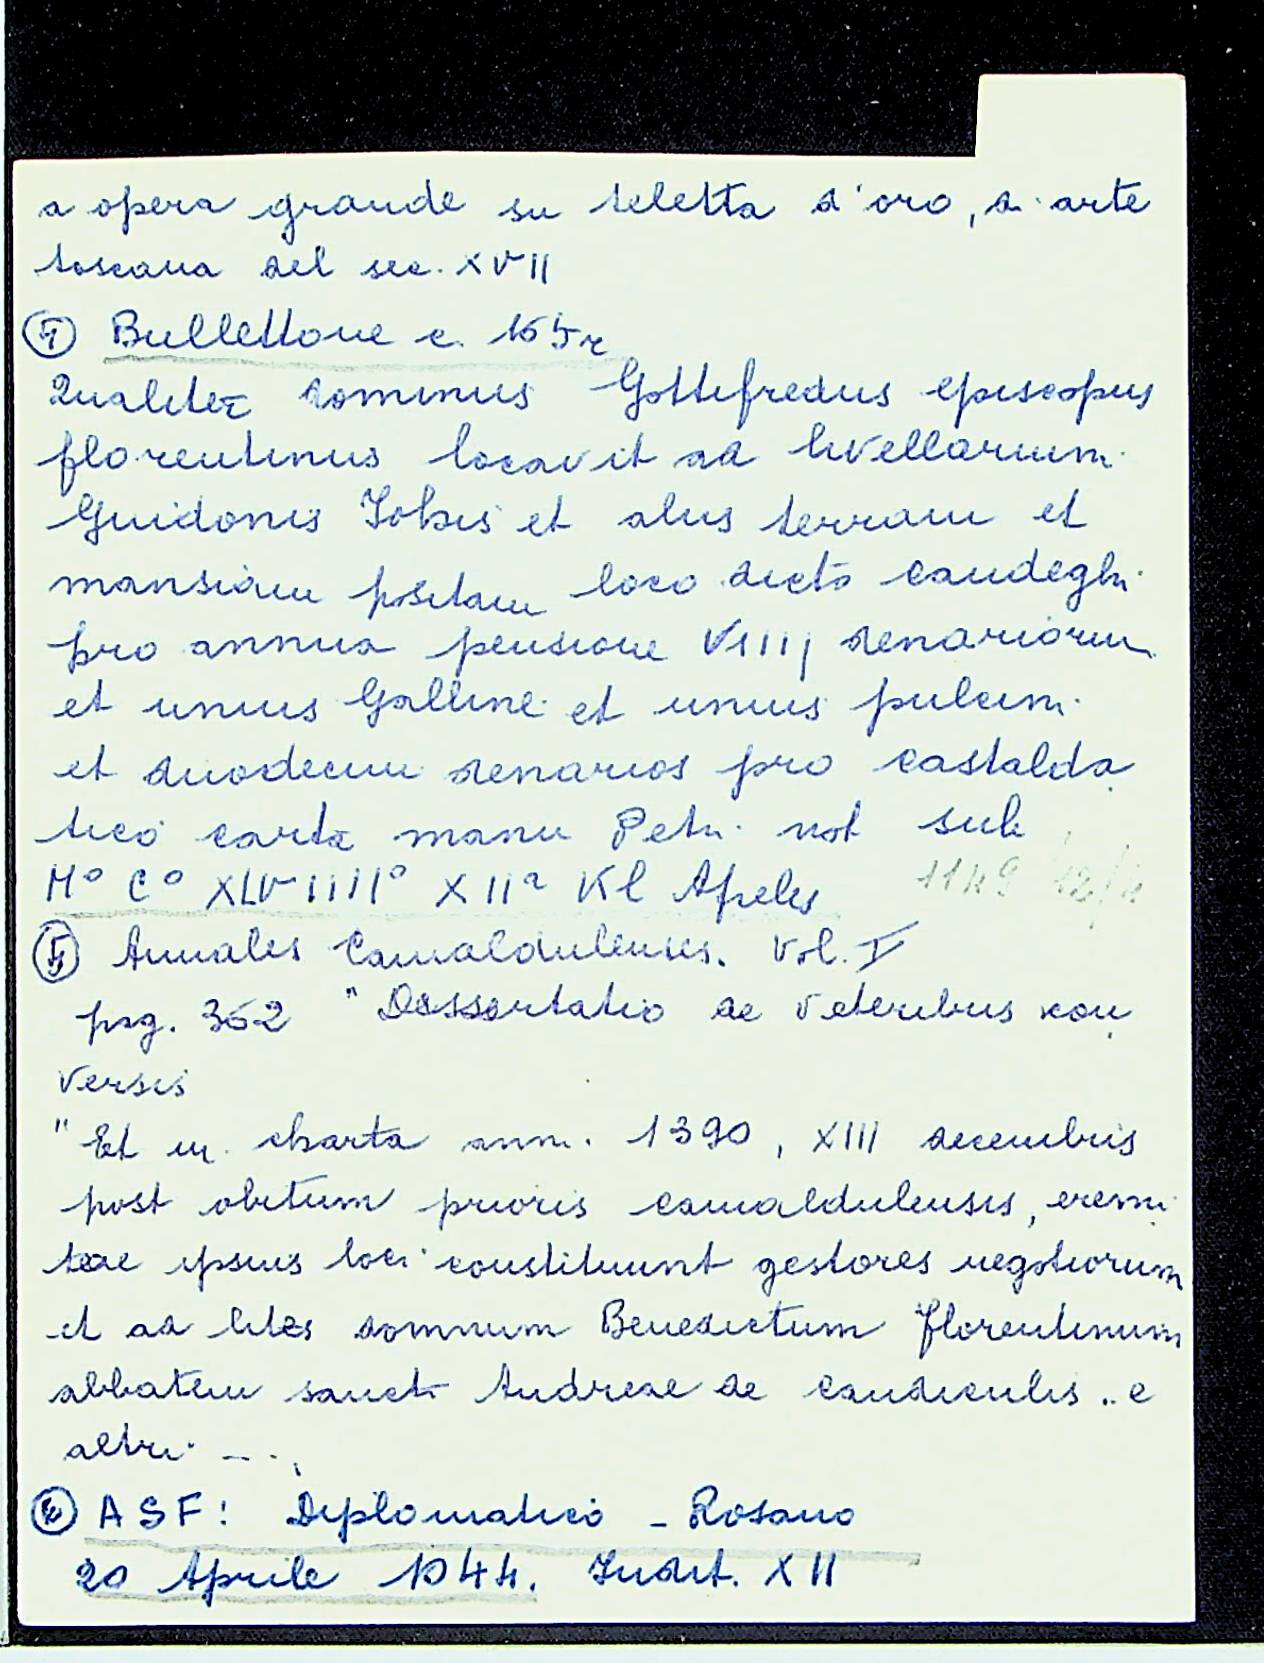 a opera grande su teletta d'oro, di arte
toscana del sec. XVII
④ Bullettone c. 165r
Qualiter dominus Gottifredus episcopus
florentinus locavit ad livellarium
Guidonis Johis et aliis terram et
mansiam positam loco dicto candeghi
pro annua pensione VIIIj denariorum
et unius Galline et unius pulcini
et duodecim denarios pro castalda
tico carta manu Petri not sub
M° C° XLVIIII° XIIa Kl Apeles 1149
⑤ Annales Camaldulenses. Vol. I
pag. 362 " Dissertatio de veteribus con
versis
" Et in charta ann. 1390, XIII decembris
post obitum prioris camaldulensis, eremi
tae ipsius loci constituunt gestores negotiorum
et ad lites domnum Benedictum florentinum
abbatem sancti Andreae de candiculis .. e
altri - - .
⑥ ASF: Diplomatico - Rosano
20 Aprile 1044. Indit. XII